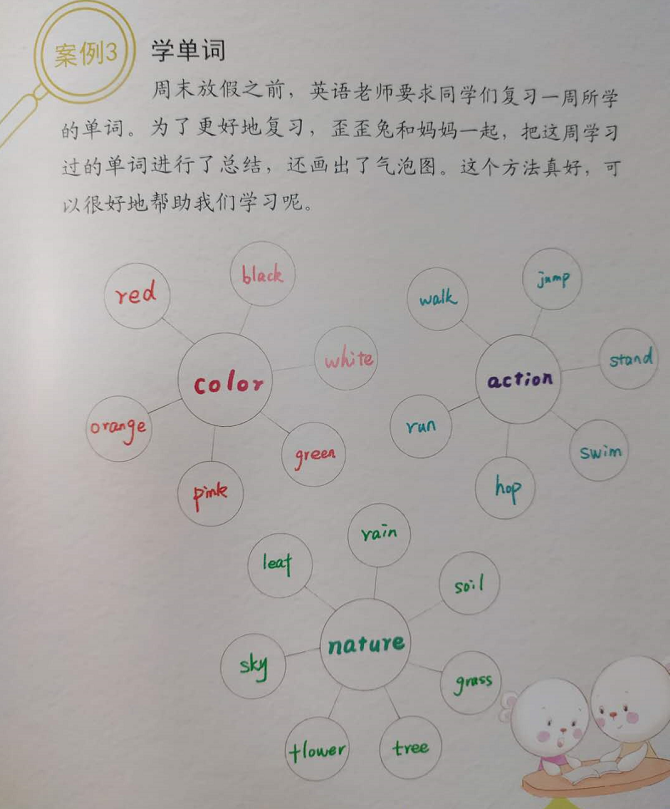 案例3
学单词
周末放假之前，英语老师要求同学们复习一周所学
的单词。为了更好地复习，歪歪兔和妈妈一起，把这周学习
过的单词进行了总结，还画出了气泡图。这个方法真好，可
以很好地帮助我们学习呢。
red
black
white
color
orange
green
pink
walk
jump
stand
action
run
swim
hop
rain
leaf
soil
nature
sky
grass
flower
tree